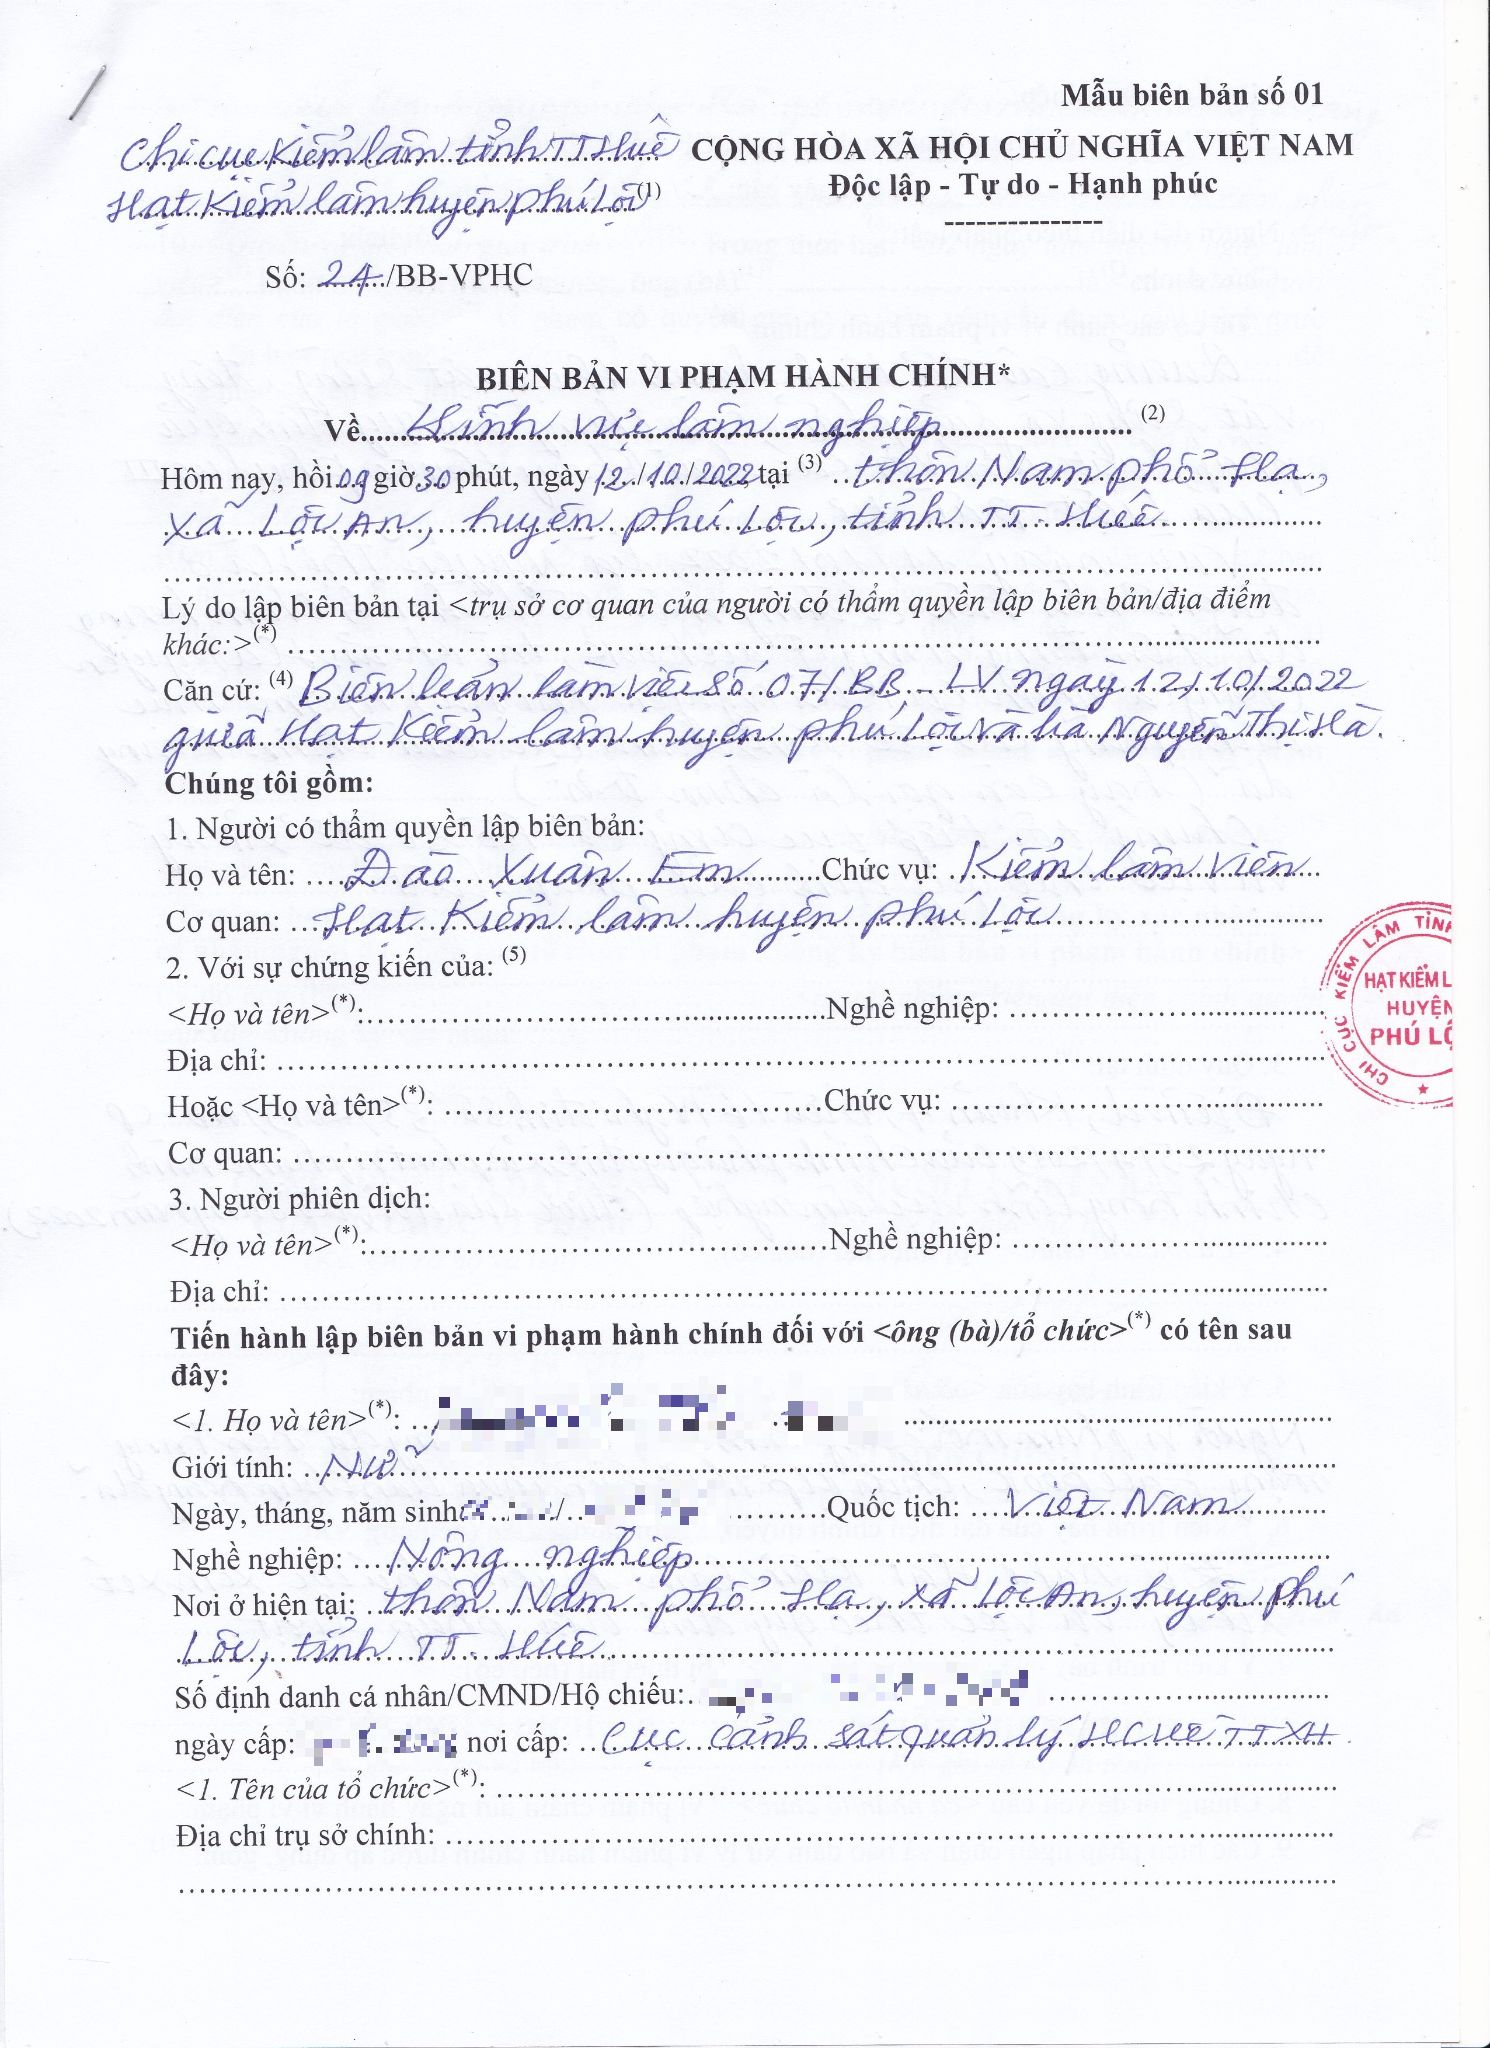 Mẫu biên bản số 01
Chi cục Kiểm lâm tỉnh TT Huế
CỘNG HÒA XÃ HỘI CHỦ NGHĨA VIỆT NAM
Hạt Kiểm lâm huyện Phú Lộc (1)
Độc lập - Tự do - Hạnh phúc
---------------
Số: 24/BB-VPHC
BIÊN BẢN VI PHẠM HÀNH CHÍNH*
Về Lĩnh vực lâm nghiệp (2)
Hôm nay, hồi 09 giờ 30 phút, ngày 12/10/2022, tại (3) thôn Nam phổ Hạ,
xã Lộc An, huyện phú Lộc, tỉnh TT. Huế
Lý do lập biên bản tại <trụ sở cơ quan của người có thẩm quyền lập biên bản/địa điểm
khác:>(*)
Căn cứ: (4) Biên bản làm việc số 07/BB-LV ngày 12/10/2022
giữa Hạt Kiểm lâm huyện phú Lộc và bà Nguyễn Thị Hà.
Chúng tôi gồm:
1. Người có thẩm quyền lập biên bản:
Họ và tên: Đào Xuân Em Chức vụ: Kiểm lâm viên
Cơ quan: Hạt Kiểm lâm huyện phú Lộc
2. Với sự chứng kiến của: (5)
<Họ và tên>(*): Nghề nghiệp:
Địa chỉ:
Hoặc <Họ và tên>(*): Chức vụ:
Cơ quan:
3. Người phiên dịch:
<Họ và tên>(*): Nghề nghiệp:
Địa chỉ:
Tiến hành lập biên bản vi phạm hành chính đối với <ông (bà)/tổ chức>(*) có tên sau
đây:
<1. Họ và tên>(*):
Giới tính: Nữ
Ngày, tháng, năm sinh: / Quốc tịch: Việt Nam
Nghề nghiệp: Nông nghiệp
Nơi ở hiện tại: thôn Nam phổ Hạ, xã Lộc An, huyện phú
Lộc, tỉnh TT. Huế
Số định danh cá nhân/CMND/Hộ chiếu:
ngày cấp: nơi cấp: Cục cảnh sát quản lý HC về TTXH
<1. Tên của tổ chức>(*):
Địa chỉ trụ sở chính:
CHI CỤC KIỂM LÂM TỈNH
HẠT KIỂM L
HUYỆN
PHÚ LỘ